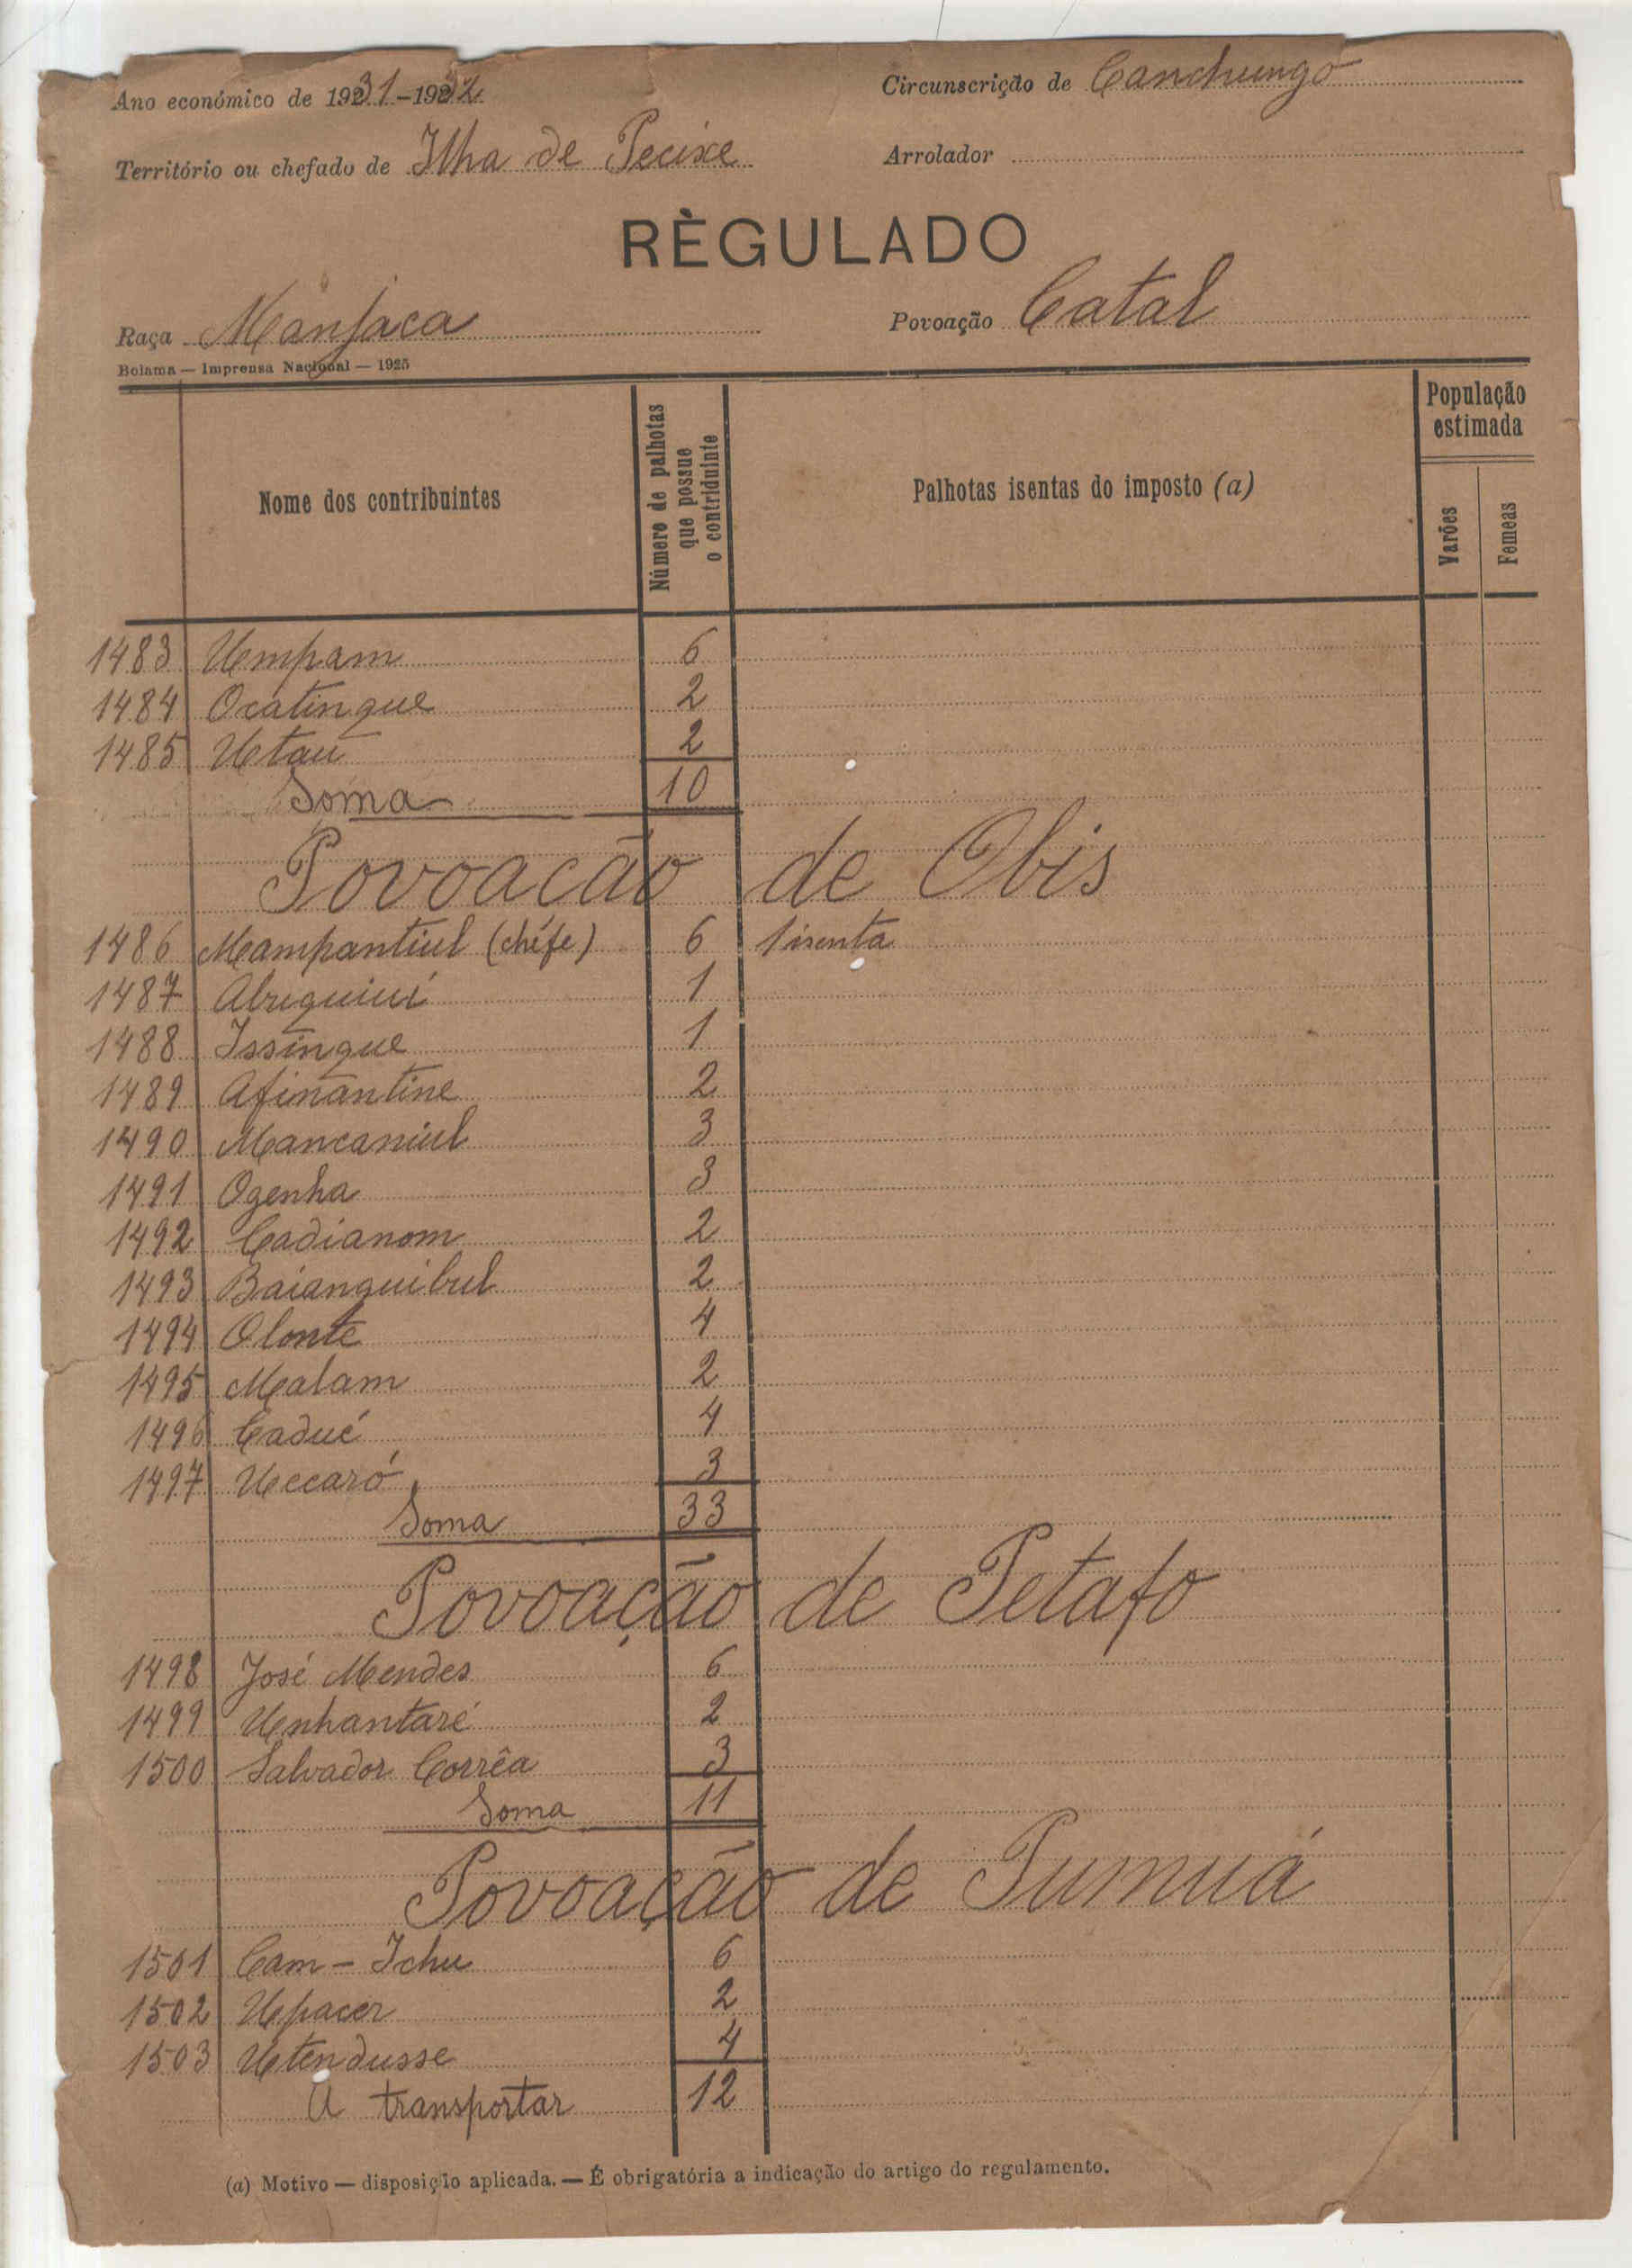 Ano económico de 1931-1932
Circunscrição de Canchungo
Território ou chefado de Ilha de Pecixe
Arrolador
RÈGULADO
Raça Manjaca
Povoação Catal
Bolama — Imprensa Nacional — 1925
Nome dos contribuintes
Número de palhotas
que possue
o contriduinte
Palhotas isentas do imposto (a)
População
estimada
Varões
Femeas
1483 Uempam 6
1484 Ocatingue 2
1485 Uetau 2
Soma 10
Povoacão de Obis
1486 Mampantiul (chéfe) 6 1 isenta
1487 1
1488 Issingue 1
1489 Afinantine 2
1490 Mancaniul 3
1491 Ogenha 3
1492 Cadianom 2
1493 Baianguibul 2
1494 Olonte 4
1495 Malam 2
1496 Cadué 4
1497 Ueccaró 3
Soma 33
Povoação de Petafo
1498 José Mendes 6
1499 Uenhantaré 2
1500 Salvador Corrêa 3
Soma 11
Povoação de Pumuá
1501 Cam-Ichu 6
1502 Uepacer 2
1503 Uetendusse 4
A transportar 12
(a) Motivo — disposição aplicada. — É obrigatória a indicação do artigo do regulamento.